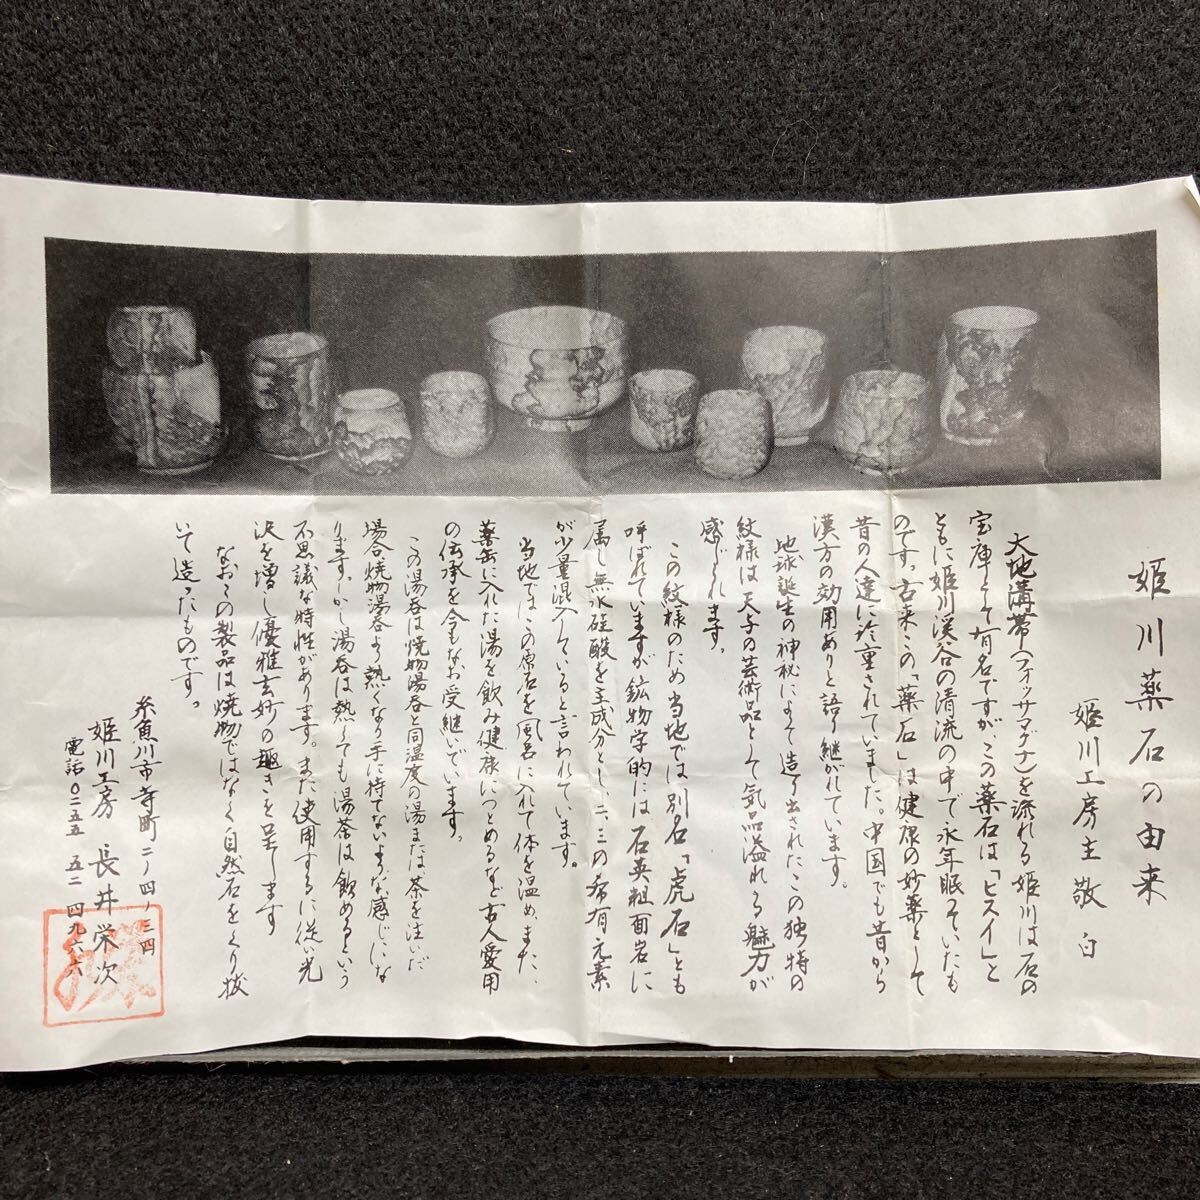 姫川薬石の由来
姫川工房主敬白
大地溝帯(フォッサマグナ)を流れる姫川は石の
宝庫として有名ですが、この薬石は「ヒスイ」と
ともに姫川渓谷の清流の中で永年眠っていたも
のです。古来この「薬石」は健康の妙薬として
昔の人達に珍重されていました。中国でも昔から
漢方の効用ありと語り継がれています。
地球誕生の神秘によって造り出されたこの独特の
紋様は天与の芸術品として気品溢れる魅力が
感じられます。
この紋様のため当地では別名「虎石」とも
呼ばれていますが鉱物学的には石英粗面岩に
属し無水硅酸を主成分とし、二、三の希有元素
が少量混入していると言われています。
当地ではこの原石を風呂に入れて体を温め、また、
薬缶に入れた湯を飲み健康につとめるなど古人愛用
の伝承を今もなお受継いでいます。
この湯呑は焼物湯呑と同温度の湯または茶を注いだ
場合、焼物湯呑より熱くなり手に持てないような感じにな
ります。しかし湯呑は熱くても湯茶は飲めるという
不思議な特性があります。また使用するに従い光
沢を増し優雅玄妙の趣きを呈します
なおこの製品は焼物ではなく自然石をくり抜
いて造ったものです。
糸魚川市寺町二ノ四ノ三四
姫川工房 長井栄次
電話〇二五五 五二 四九六六